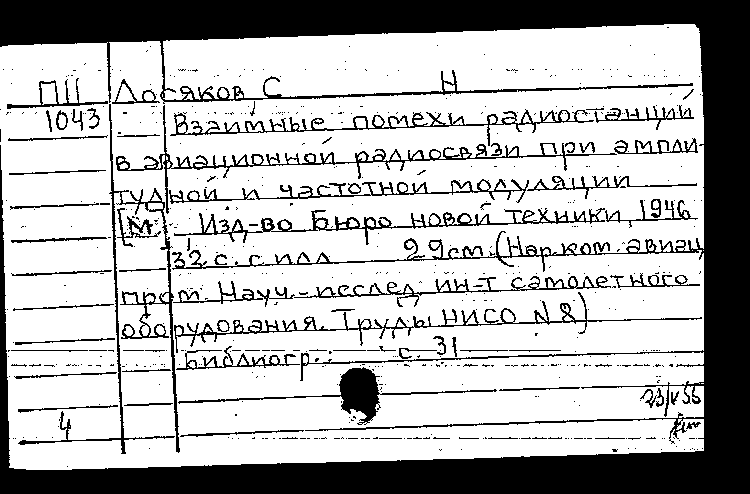 П11 Лосяков, С Н
1043 Взаимные помехи радиостанций
в авиационной радиосвязи при ампли-
тудной и частотной модуляции
[М] Изд-во Бюро новой техники, 1946
32 с. с илл 29см. (Нар.ком. авиац
пром. Науч.-исслед. ин-т самолетного
оборудования. Труды НИСО N 8)
Библиогр.: с. 31
23/V 55
4